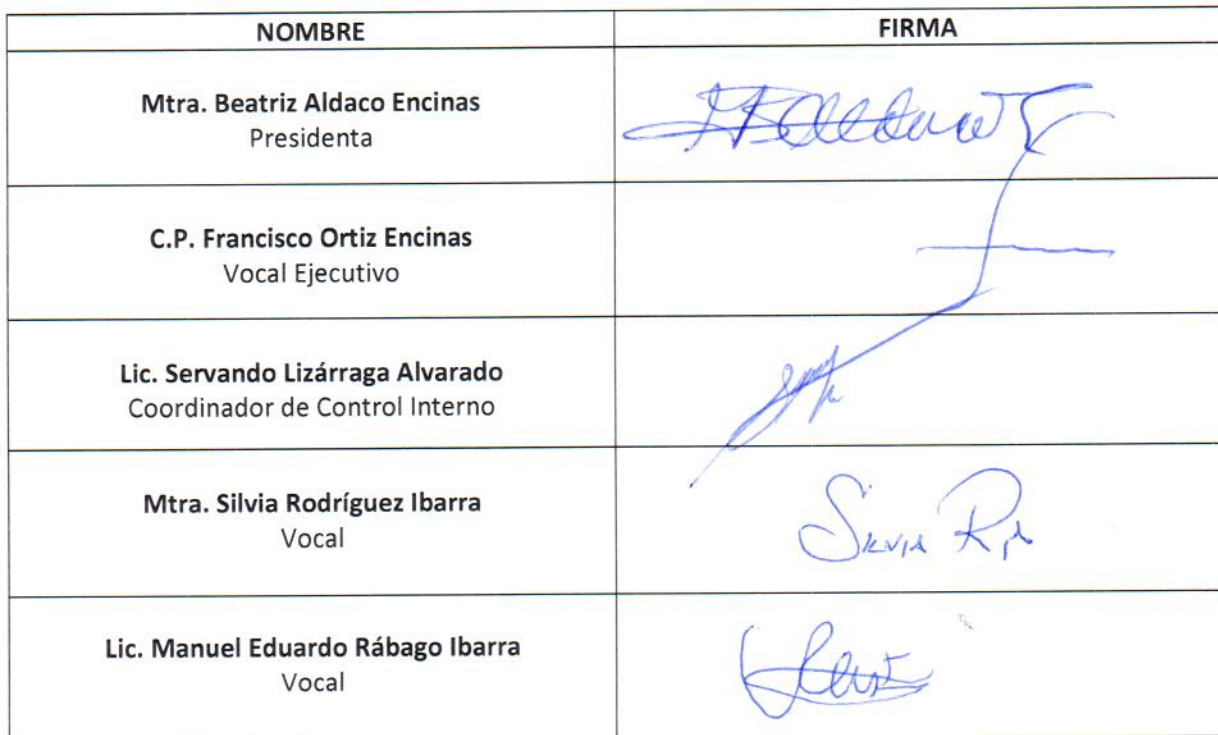 NOMBRE
FIRMA
Mtra. Beatriz Aldaco Encinas
Presidenta
C.P. Francisco Ortiz Encinas
Vocal Ejecutivo
Lic. Servando Lizárraga Alvarado
Coordinador de Control Interno
Mtra. Silvia Rodríguez Ibarra
Vocal
Silvia
Lic. Manuel Eduardo Rábago Ibarra
Vocal